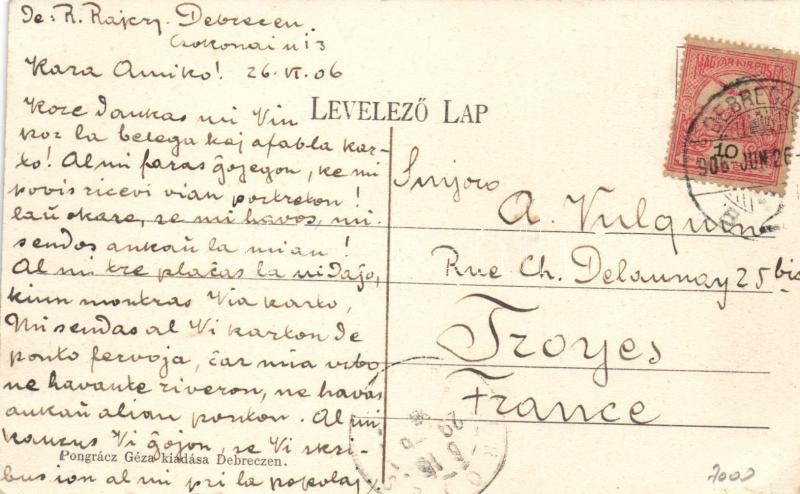 De: R. Rajczy. Debreczen.
Csokonai u 13
Kara Amiko! 26.VI.06
Kore dankas mi Vin
por la belega kaj afabla kar-
to! Al mi faras ĝojegon, ke mi
povis ricevi vian portreton!
laŭokaze, se mi havos, mi
sendos ankaŭ la mian!
Al mi tre plaĉas la vidaĵo,
kiun montras Via karto,
Mi sendas al Vi karton de
ponto fervoja, ĉar mia urbo
ne havante riveron, ne havas
ankaŭ alian ponton. Al mi
kaŭzus Vi ĝojon, se Vi skri-
bus ion al mi pri la popolaj
LEVELEZŐ LAP
MAGYAR KIR. POSTA
10
DEBRECZEN
906 JUN. 26
Sinjoro
A. Vulquin
Rue Ch. Delaunay 25 bis
Troyes
France
Pongrácz Géza kiadása Debreczen.
7000